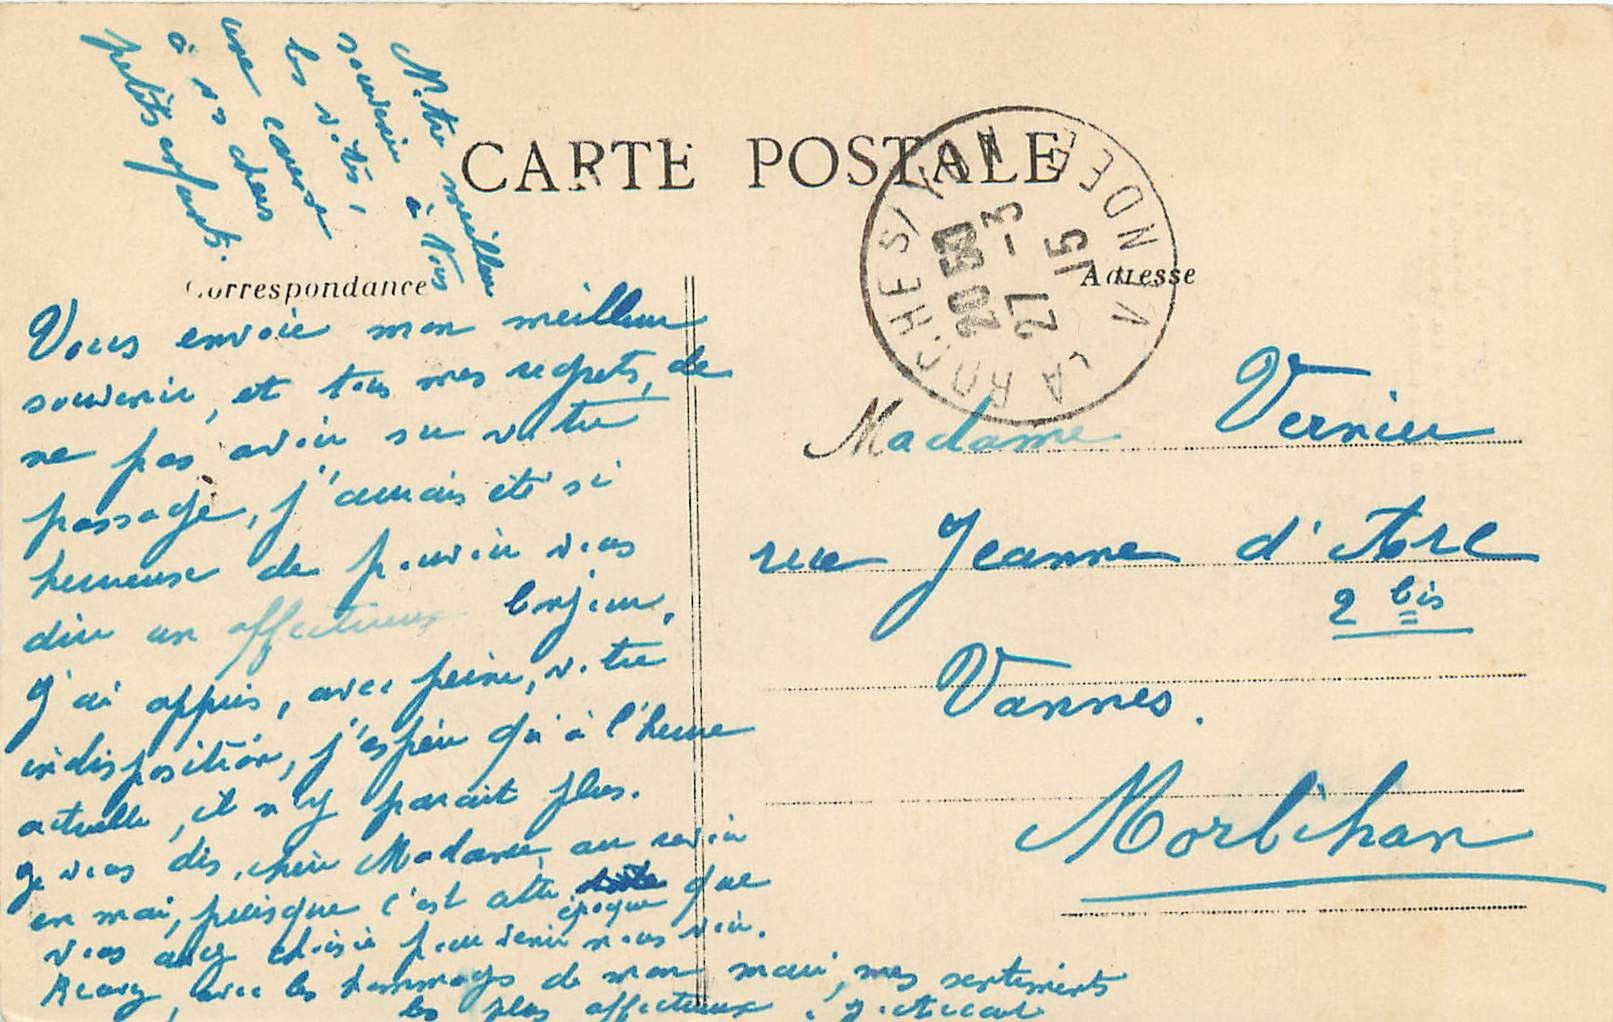 CARTE POSTALE
Correspondance
Adresse
LA ROCHE S/ YON VENDEE
20 30
27 -3
15
Madame Vernier
rue Jeanne d'Arc
2 bis
Vannes.
Morbihan
Vous envoie mon meilleur
souvenir, et tous mes regrets, de
ne pas avoir su votre
passage, j'aurais été si
heureuse de pouvoir vous
dire un affectueux bonjour.
J'ai appris, avec peine, votre
indisposition, j'espère qu'à l'heure
actuelle, il n'y parait plus.
Je vous dis, chère Madame, au revoir
en mai, puisque c'est cette époque que
vous avez choisie pour venir nous voir.
Recevez, avec les hommages de mon mari, mes sentiments
les plus affectueux.
Notre meilleur
souvenir à tous
les vôtres,
une caresse
à vos chers
petits enfants.